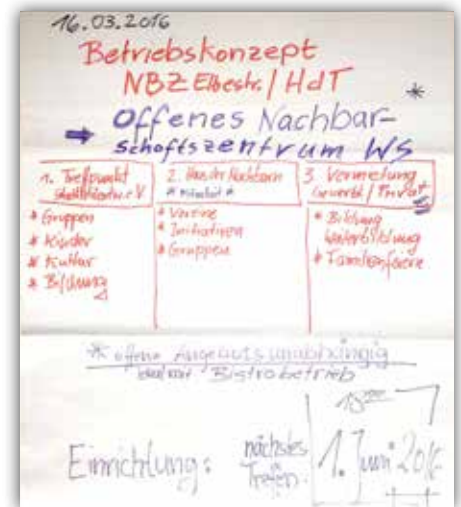 16.03.2016
Betriebskonzept
NBZ Elbestr. / HdT
*
➡ Offenes Nachbar-
schaftszentrum WS
1. Treffpunkt
* Gruppen
* Kinder
* Kultur
* Bildung
2. Haus der Nachbarn
* *
* Vereine
* Initiativen
* Gruppen
3. Vermietung
Gewerbl. / Privat
* Bildung
Weiterbildung
* Familienfeiern
* offene Angebotsunabhängig
Bistrobetrieb
Einrichtung:
nächstes
Treffen:
18⁰⁰
1. Juni 2016